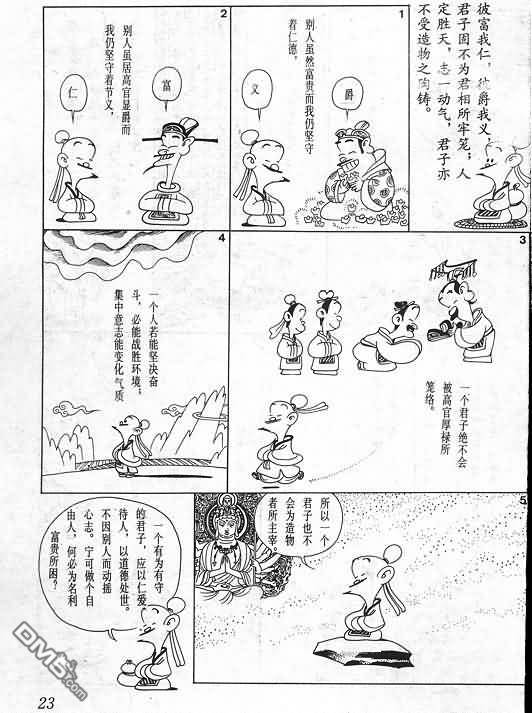 彼富我仁，彼爵我义，
君子固不为君相所牢笼；人
定胜天，志一动气，君子亦
不受造物之陶铸。
1
别人虽然富贵而我仍坚守
着仁德，
爵
义
2
别人虽居高官显爵而
我仍坚守着节义，
富
仁
3
一个君子绝不会
被高官厚禄所
笼络。
4
一个人若能坚决奋
斗，必能战胜环境；
集中意志能变化气质
5
所以一个
君子也不
会为造物
者所主宰。
一个有为有守
的君子，应以仁爱
待人，以道德处世。
不因别人而动摇
心志。宁可做个自
由人，何必为名利
富贵所困？
DM5.com
23